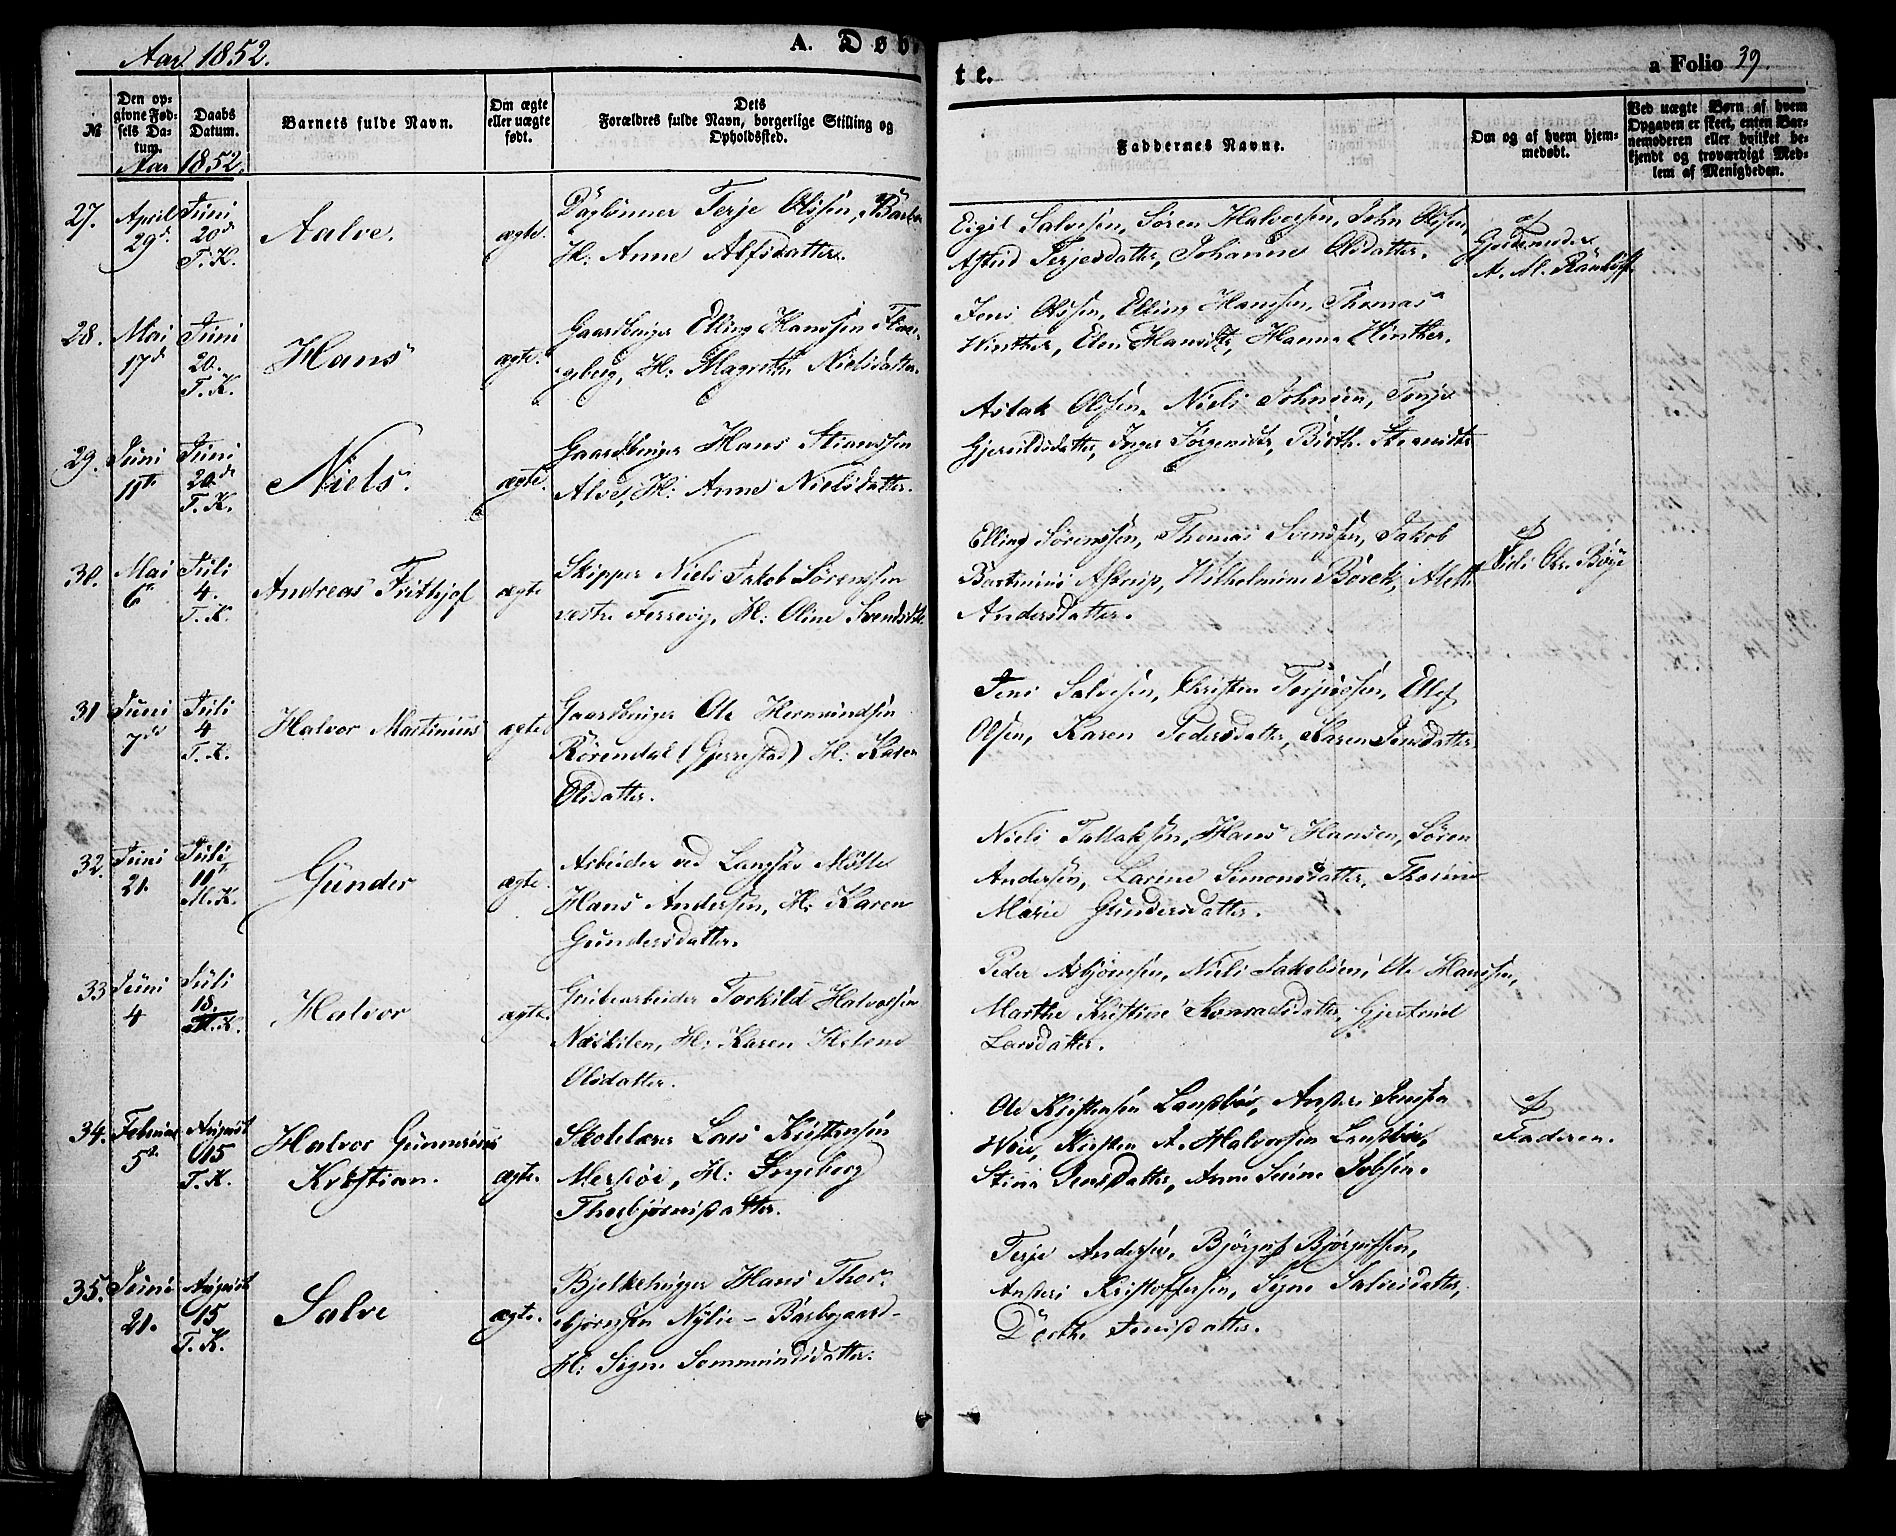 Aar 1852.
A. Døb
te.
a Folio 39.
№
Den op-
givne Fød-
sels Da-
tum.
Daabs
Datum.
Barnets fulde Navn.
Om ægte
eller uægte
født.
Dets
Forældres fulde Navn, borgerlige Stilling og
Opholdssted.
Faddernes Navne.
Om og af hvem hjem-
medøbt.
Ved uægte Børn af hvem
Opgaven er skeet, enten Bar-
nemoderen eller hvilket be-
kjendt og troværdigt Med-
lem af Menigheden.
Aar 1852.
27.
April
29d.
Juni
20d.
T. K.
Aalve.
ægte.
Daglønner Terje Olsen, Barbo
H: Anne Alfsdatter.
Eigil Salvesen, Søren Halvorsen, John Olsen,
Terjesdatter, Johanne Olsdatter.
af
Gjordemoder
28.
Mai
17d
Juni
20.
T. K.
Hans
ægte.
Gaardbruger Elling Hanssen
H: Magrethe Nielsdatter.
Jens Olssen, Elling Hanssen, Thomas
Winther, Elen Hansdtr, Hanne Winther.
29.
Juni
11te
Juni
20de
T. K.
Niels.
ægte.
Gaardbruger Hans Stianssen
Alve, H: Anne Nielsdatter.
Aslak Olssen, Niels Johnsen,
Inger Jørgensdtr,
30.
Mai
6te
Juli
4.
T. K.
Andreas Frithjof
ægte
Skipper Niels Jakob Sørenssen
vestre Ferrevig, H: Oline Svendsdtr.
Elling Sørenssen, Thomas Svendsen, Jakob
Astrup, Wilhelmine
Andersdatter.
af
31
Juni
7de
Juli
4
T. K.
Halvor Martinius
ægte
Gaardbruger Ole Hermundsen
Rørendal (Gjerrestad) H: Karen
Olsdatter.
Jens Salvesen, Christen Terjesen, Ellef
Olsen, Karen Pedersdatter, Karen Jensdatter.
32.
Juni
21.
Juli
11te
M. K.
Gunder
ægte.
Arbeider ved Langsæ Mølle
Hans Andersen, H: Karen
Gundersdatter.
Niels Tallaksen, Hans Hansen, Søren
Andersen, Larine Simonsdatter,
Marie Gundersdatter.
33
Juni
4
Juli
18.
Halvor
ægte.
Grubearbeider Torkild Halvorsen
Næskilen, H: Karen Helene
Olsdatter.
Peder Asbjørnsen, Niels Jakobsen, Ole Hanssen,
Marthe Kristine Konradsdatter, Gjertrud
Larsdatter.
34.
Februar
5te
August
15
T. K.
Halvor Gunnerius
Kristian.
ægte.
Skolelærer Lars Kristensen
Mersøe, H: Ingeborg
Thorbjørnsdatter.
Ole Kristensen Langsbøe, Anders Jensen
Kristen A. Halvorsen Langsbøe,
Stine Jensdatter, Anne Serine Jobsen.
af
Faderen.
35.
Juni
21.
August
15
T. K.
Salve
ægte.
Bjelkehugger Hans Thor-
bjørnsen Nylie - Barbogaard-
H: Signe Sommundsdatter.
Terje Andersen, Bjørguf Bjørgufsen,
Anders Kristoffersen, Signe Salvesdatter,
Dorthe Jensdatter.